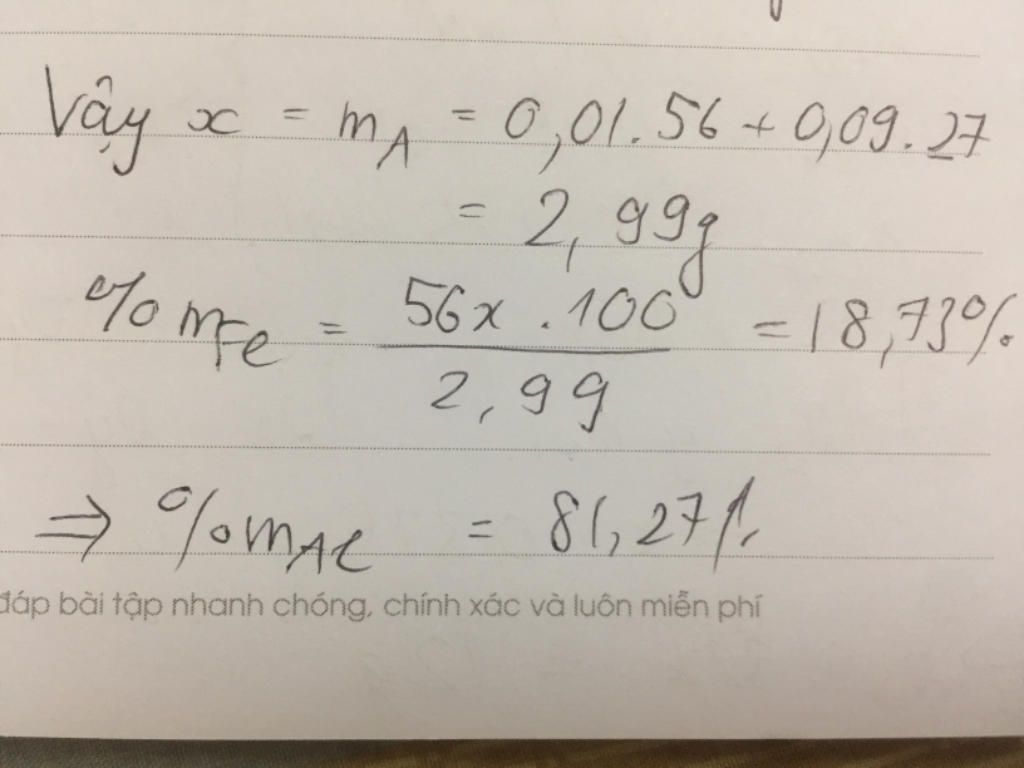 Vậy x = mA = 0,01.56 + 0,09.27
= 2,99g
%mFe = 56x.100 / 2,99 = 18,73%
⇒ %mAl = 81,27%
đáp bài tập nhanh chóng, chính xác và luôn miễn phí